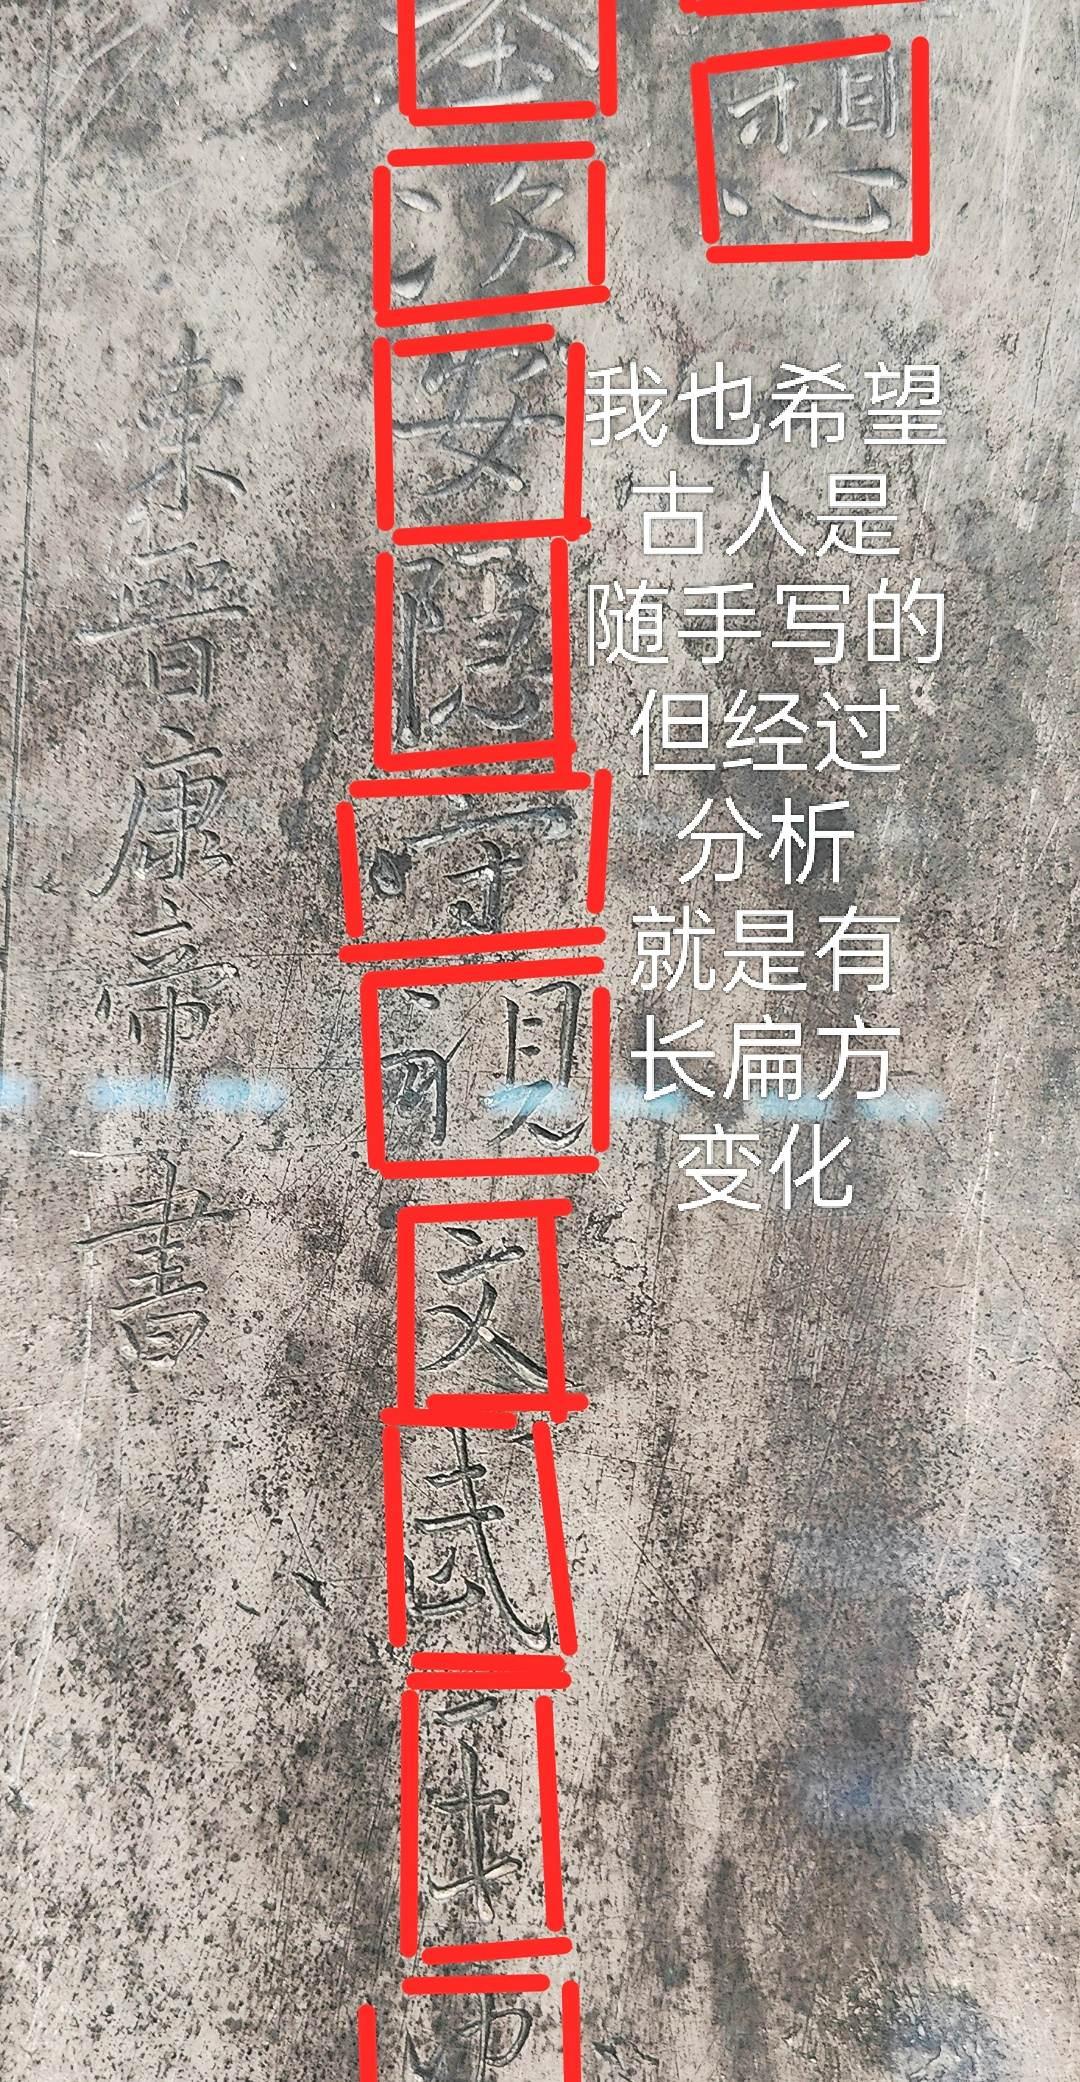 想
汝
安
隐
守
視
文
武
主
東晋康帝書
我也希望
古人是
随手写的
但经过
分析
就是有
长扁方
变化